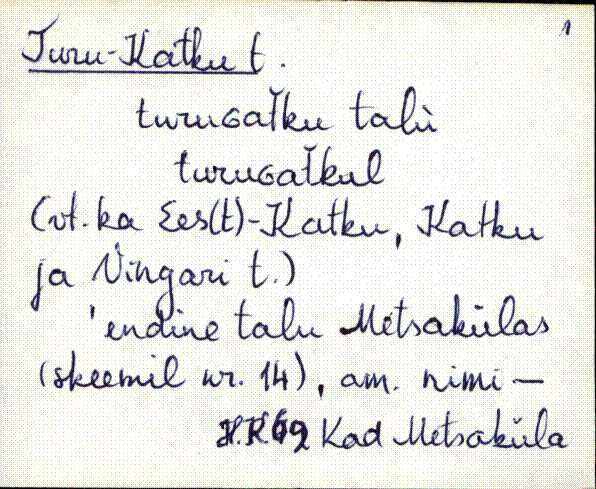 1
Turu-Katku t.
turuGat̆ku talù
turuGat̆kul
(vt. ka Ees(t)-Katku, Katku
ja Vingari t.)
'endine talu Metsakülas
(skeemil nr. 14), am. nimi —
H.K 69 Kad Metsaküla